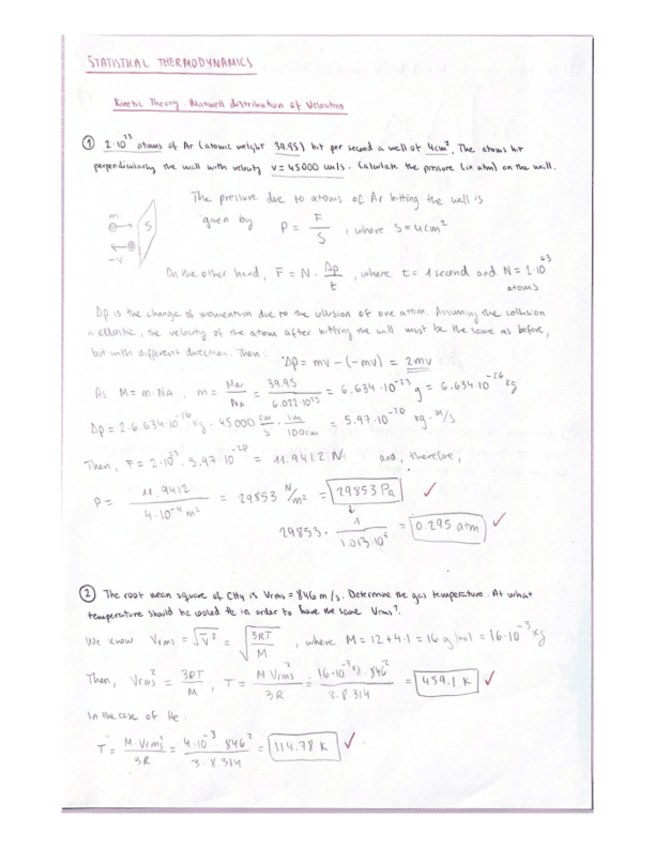 STATISTICAL THERMODYNAMICS
Kinetic Theory. Maxwell distribution of Velocities
① 2·10²³ atoms of Ar (atomic weight 39.95) hit per second a wall of 4cm². The atoms hit
perpendicularly the wall with velocity v = 45000 cm/s. Calculate the pressure (in atm) on the wall.
The pressure due to atoms of Ar hitting the wall is
given by P = F/S , where S = 4cm²
m
S
-v
On the other hand, F = N · Δp/t , where t = 1 second and N = 2·10²³
atoms
Δp is the change of momentum due to the collision of one atom. Assuming the collision
is elastic, the velocity of the atom after hitting the wall must be the same as before,
but with different direction. Then:
Δp = mv - (-mv) = 2mv
As M = m·NA , m = MAr/NA = 39.95/6.022·10²³ = 6.634·10⁻²³ g = 6.634·10⁻²⁶ kg
Δp = 2·6.634·10⁻²⁶ kg · 45000 cm/s · 1m/100cm = 5.97·10⁻²⁰ kg·m/s
Then, F = 2·10²³ · 5.97·10⁻²⁰ = 11.9412 N and, therefore,
P = 11.9412/4·10⁻⁴ m² = 29853 N/m² = 29853 Pa ✓
29853 · 1/1.013·10⁵ = 0.295 atm ✓
② The root mean square of CH4 is Vrms = 846 m/s. Determine the gas temperature. At what
temperature should be cooled He in order to have the same Vrms?.
We know Vrms = √v̅² = √3RT/M , where M = 12+4·1 = 16 g/mol = 16·10⁻³ kg
Then, Vrms² = 3RT/M ; T = M Vrms²/3R = 16·10⁻³ kg · 846²/3·8.314 = 459.1 K ✓
In the case of He:
T = M·Vrms²/3R = 4·10⁻³ · 846²/3·8.314 = 114.78 K ✓